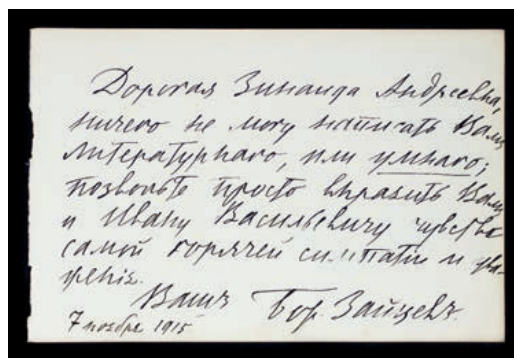 Дорогая Зинаида Андреевна,
ничего не могу написать Вамъ
литературнаго, или умнаго;
позвольте просто выразить Вамъ
и Ивану Васильевичу чувства
самой горячей симпатіи и ува-
женія.
Вашъ Бор. Зайцевъ.
7 ноября 1915